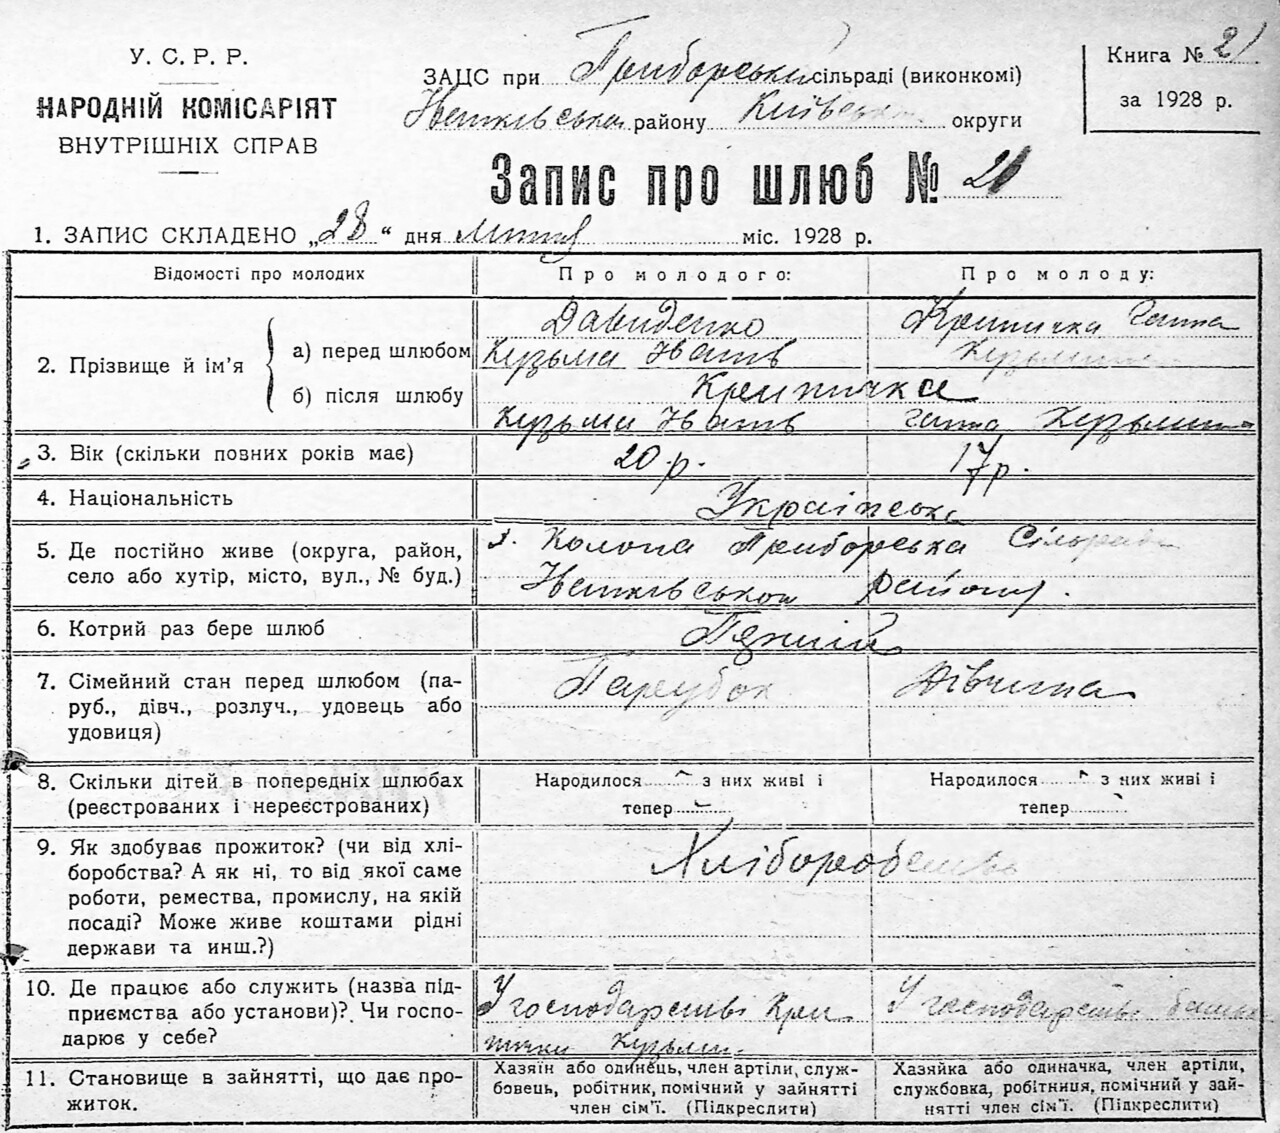 У. С. Р. Р.
НАРОДНІЙ КОМІСАРІЯТ
ВНУТРІШНІХ СПРАВ
ЗАЦС при Приборській сільраді (виконкомі)
району Київської округи
Книга № 2
за 1928 р.
Запис про шлюб №
1. ЗАПИС СКЛАДЕНО „28“ дня міс. 1928 р.
Відомості про молодих Про молодого: Про молоду:
2. Прізвище й ім'я
а) перед шлюбом
Давиденко
Кузьма Іванів
Ганна
б) після шлюбу
Кузьма Іванів Ганна
3. Вік (скільки повних років має) 20 р. 17 р.
4. Національність Українська
5. Де постійно живе (округа, район,
село або хутір, місто, вул., № буд.)
Приборська Сільради
району.
6. Котрий раз бере шлюб
7. Сімейний стан перед шлюбом (па-
руб., дівч., розлуч., удовець або
удовиця)
Парубок Дівчина
8. Скільки дітей в попередніх шлюбах
(реєстрованих і нереєстрованих)
Народилося - з них живі і
тепер -
Народилося - з них живі і
тепер -
9. Як здобуває прожиток? (чи від хлі-
боробства? А як ні, то від якої саме
роботи, ремества, промислу, на якій
посаді? Може живе коштами рідні
держави та инш.?)
Хліборобство
10. Де працює або служить (назва під-
приємства або установи)? Чи госпо-
дарює у себе?
У господарстві
У господарстві
11. Становище в зайнятті, що дає про-
житок.
Хазяїн або одинець, член артіли, служ-
бовець, робітник, помічний у зайнятті
член сім'ї. (Підкреслити)
Хазяйка або одиначка, член артіли,
службовка, робітниця, помічний у зай-
нятті член сім'ї. (Підкреслити)